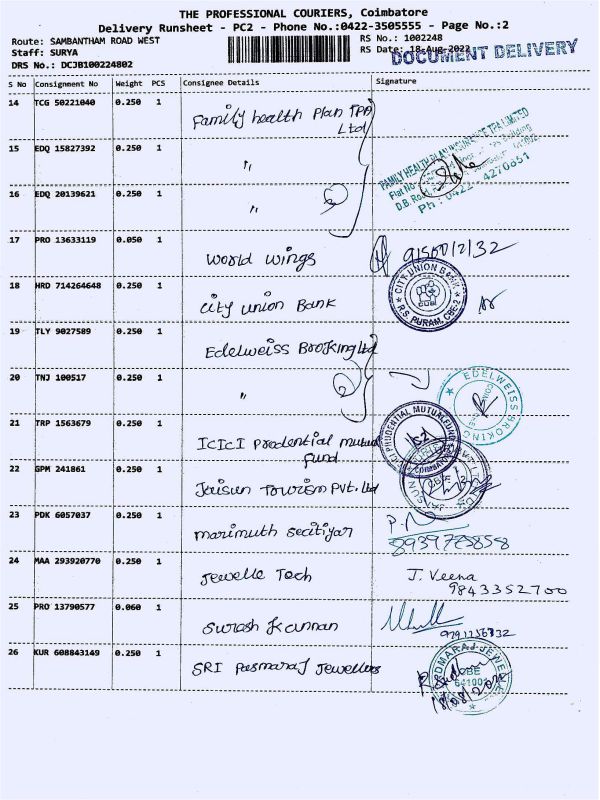 THE PROFESSIONAL COURIERS, Coimbatore
Delivery Runsheet - PC2 - Phone No.:0422-3505555 - Page No.:2
Route: SAMBANTHAM ROAD WEST RS No.: 1002248
Staff: SURYA RS Date: 18-Aug-2022
DOCUMENT DELIVERY
DRS No.: DCJB100224802
S No Consignment No Weight PCS Consignee Details Signature
14 TCG 50221040 0.250 1 Family health Plan TPA
Ltd
15 EDQ 15827392 0.250 1 "
FAMILY HEALTH PLAN INSURANCE TPA LIMITED
Flat No
D.B. Ro
Ph: 0422 - 4270851
16 EDQ 20139621 0.250 1 " 3
17 PRO 13633119 0.050 1 World Wings
18 HRD 714264648 0.250 1 City Union Bank
CITY UNION BANK
CUB
R.S. PURAM, CBE-2
19 TLY 9027589 0.250 1 Edelweiss Broking Ltd
20 TNJ 100517 0.250 1 " 2
EDELWEISS BROKING
21 TRP 1563679 0.250 1 ICICI Prodential mutual
fund
PRUDENTIAL MUTUAL FUND
22 GPM 241861 0.250 1 Jaisun Tourism Pvt. Ltd
JAISUN
23 PDK 6057037 0.250 1 marimuth
24 MAA 293920770 0.250 1 Jewelle Tech J. Veena
9843352700
25 PRO 13790577 0.060 1 Surash Kannan
26 KUR 608843149 0.250 1 SRI Pasmaraj Jewellers
DMARAJ JEWELL
CBE
641001